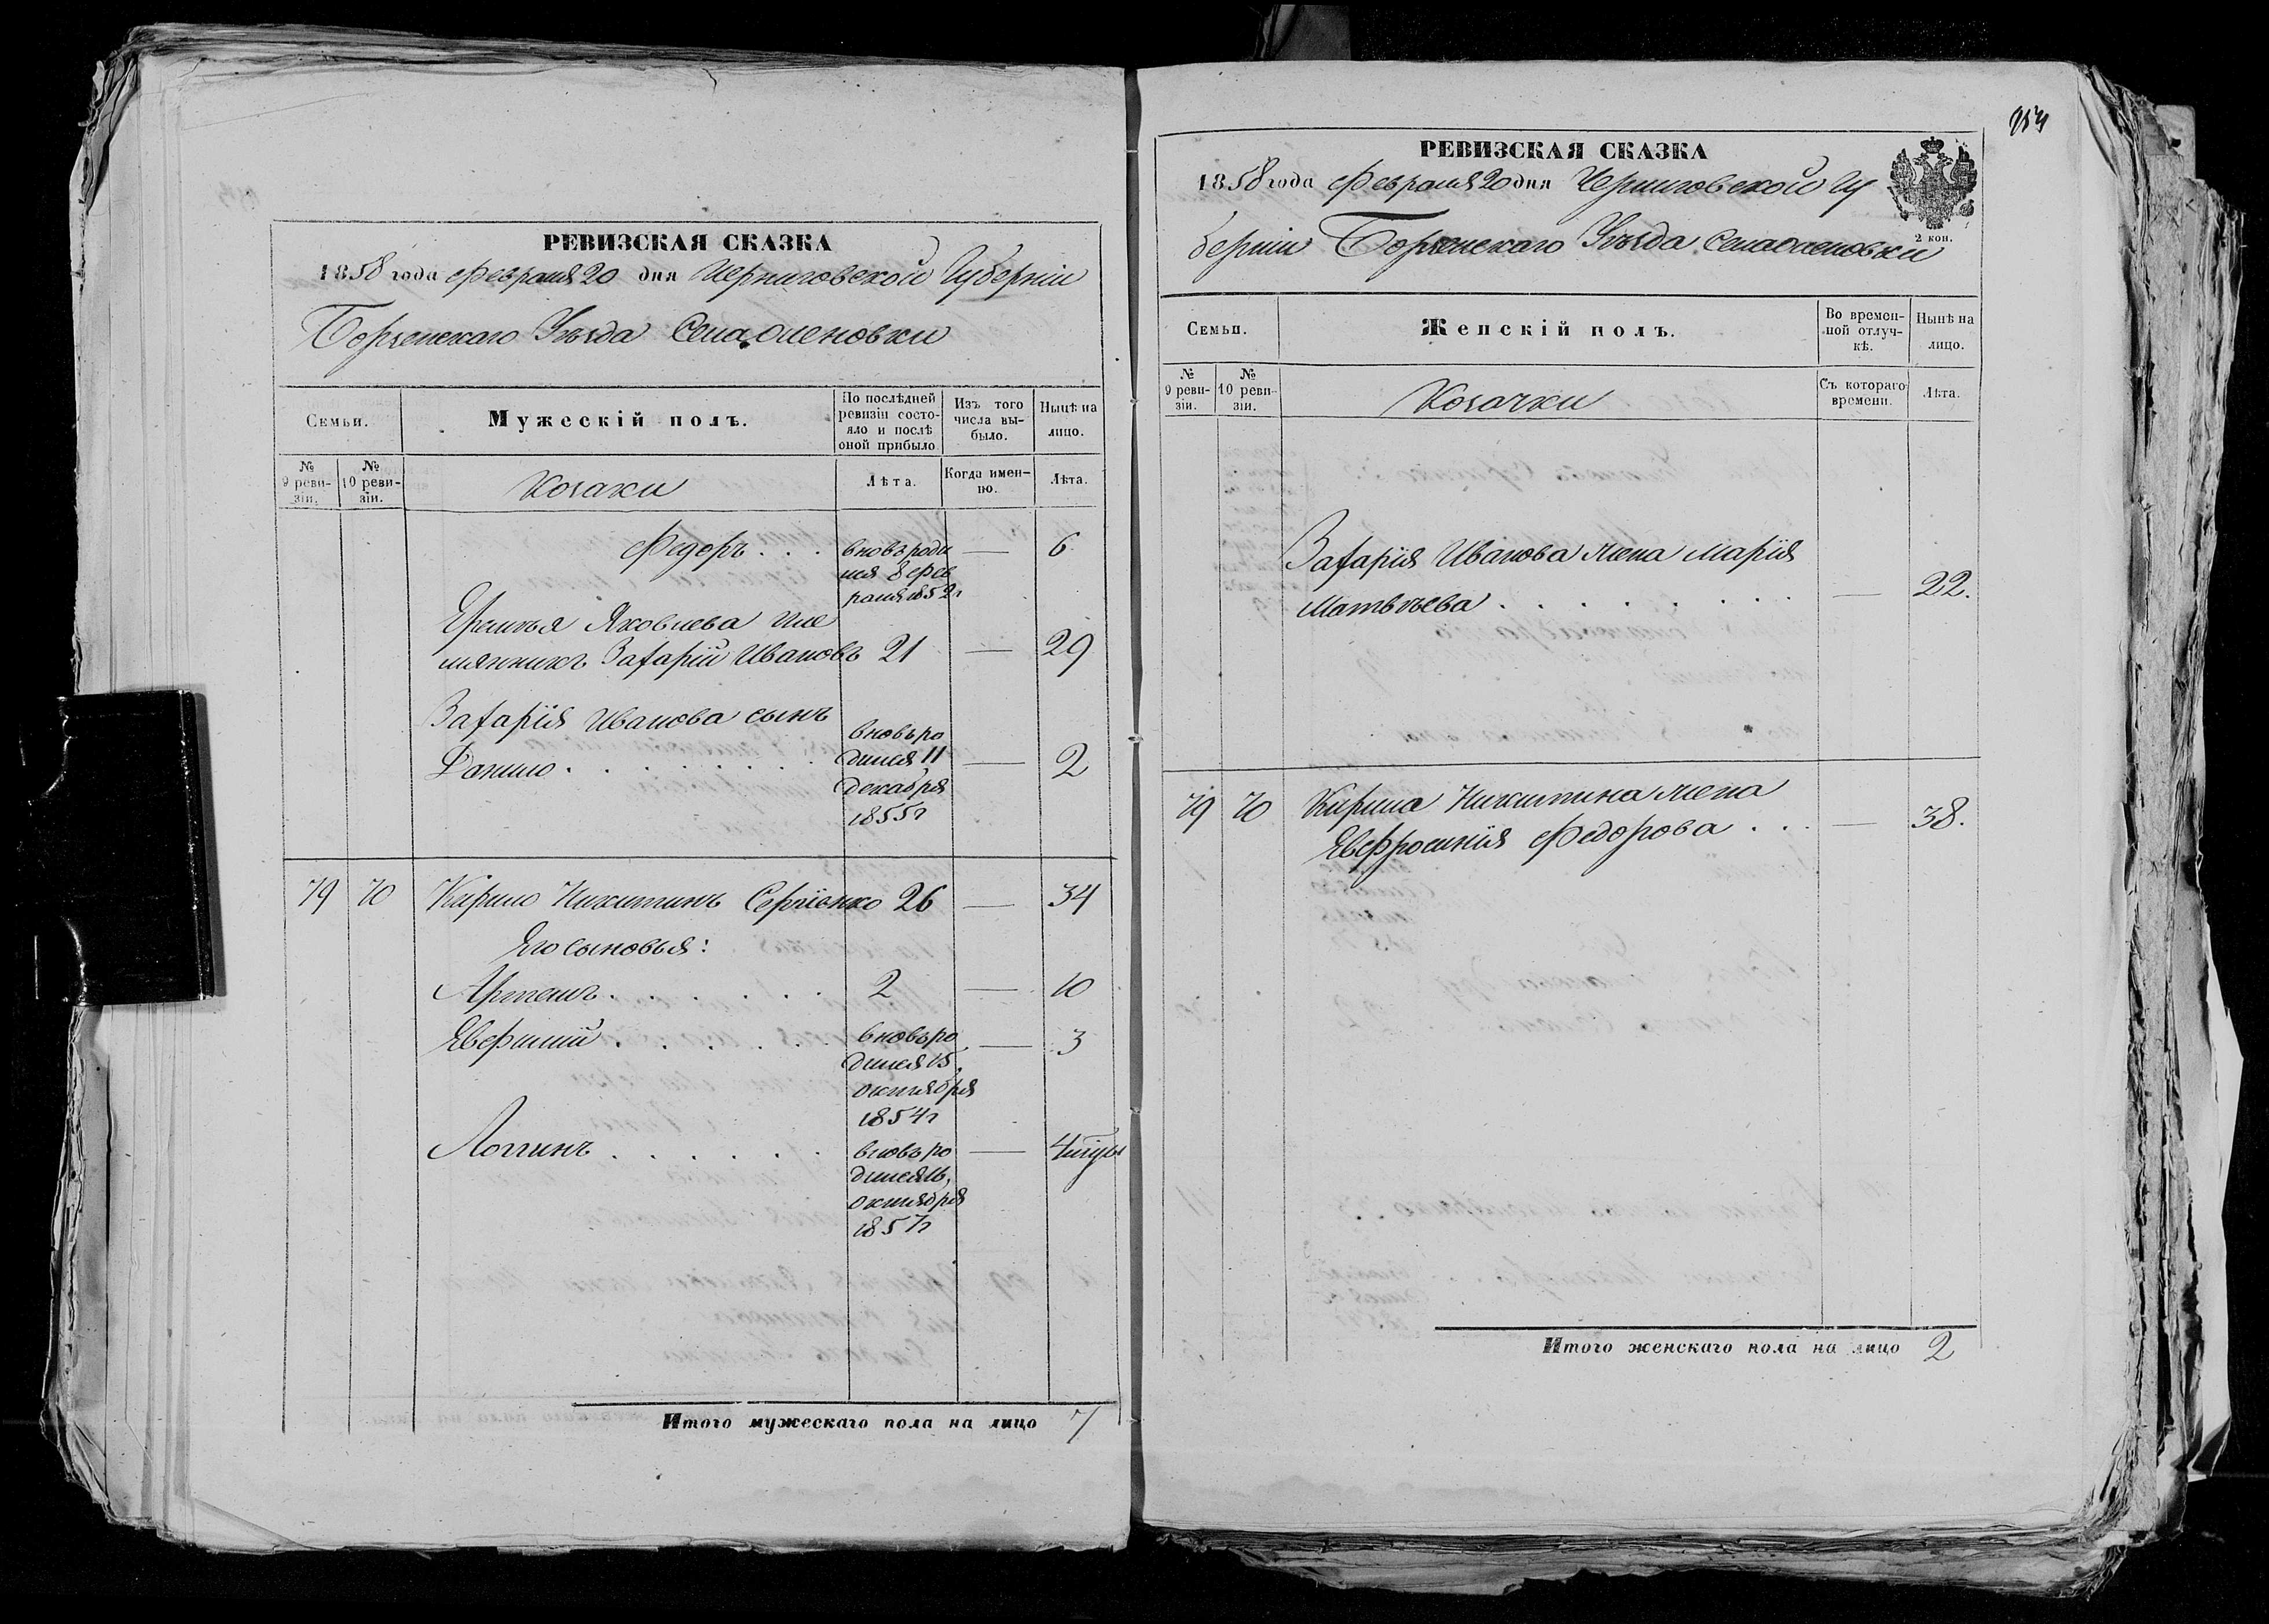 РЕВИЗСКАЯ СКАЗКА
1858 года Февраля 20 дня Черниговской Губерніи
Борзенскаго Уѣзда Села Оленовки
Семьи.
Мужескій полъ.
По послѣдней ревизіи состояло и послѣ оной прибыло
Изъ того числа выбыло.
Нынѣ на лицо.
№ 9 ревизіи.
№ 10 ревизіи.
Козаки
Лѣта.
Когда именно.
Лѣта.
Федоръ . . . вновь роди — 6
лся 8 фев
раля 1852 г
Яковлева пле
мянникъ Захарій Ивановъ 21 — 29
Захарія Иванова сынъ
вновь ро
Данило . . . . . . . дился 11 — 2
декабря
1855 г
79 70 Кирило Никитинъ Сергіенко 26 — 34
Его сыновья:
Артемъ . . . . . . 2 — 10
Евфимій . . . . . . вновь ро — 3
дился 15
октября
1854 г
Логгинъ . . . . . . вновь ро — 4 мѣцы
дился 16
октября
1857 г
Итого мужескаго пола на лицо 7
954
РЕВИЗСКАЯ СКАЗКА
1858 года Февраля 20 дня Черниговской Гу
берніи Борзенскаго Уѣзда Села Оленовки
2 коп.
Семьи.
Женскій полъ.
Во временной отлучкѣ.
Нынѣ на лицо.
№ 9 ревизіи.
№ 10 ревизіи.
Козачки
Съ котораго времени.
Лѣта.
Захарія Иванова жена Марія
Матвѣева . . . . . . . — 22.
79 70 Кирила Никитина жена
Евфросинія Федорова . . . — 38.
Итого женскаго пола на лицо 2